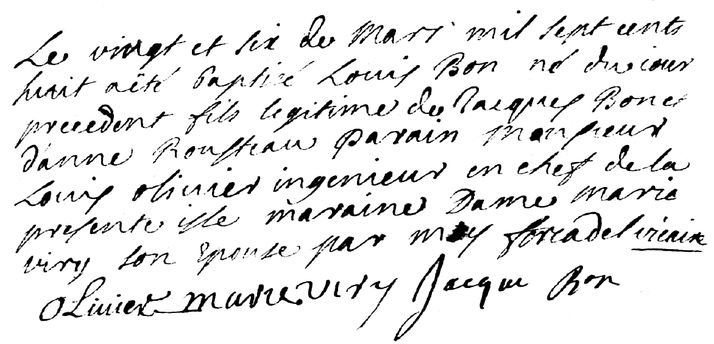 Le vingt et six de Mars mil sept cents
huit a été baptisé Louis Bon né du iour
precedent fils legitime de Jacques Bon et
d'anne Rousseau Parain Monsieur
Louis olivier ingenieur en chef de la
presente isle maraine Dame marie
viry son epouse par moy forcadel vicaire
Olivier marie viry Jacque Bon